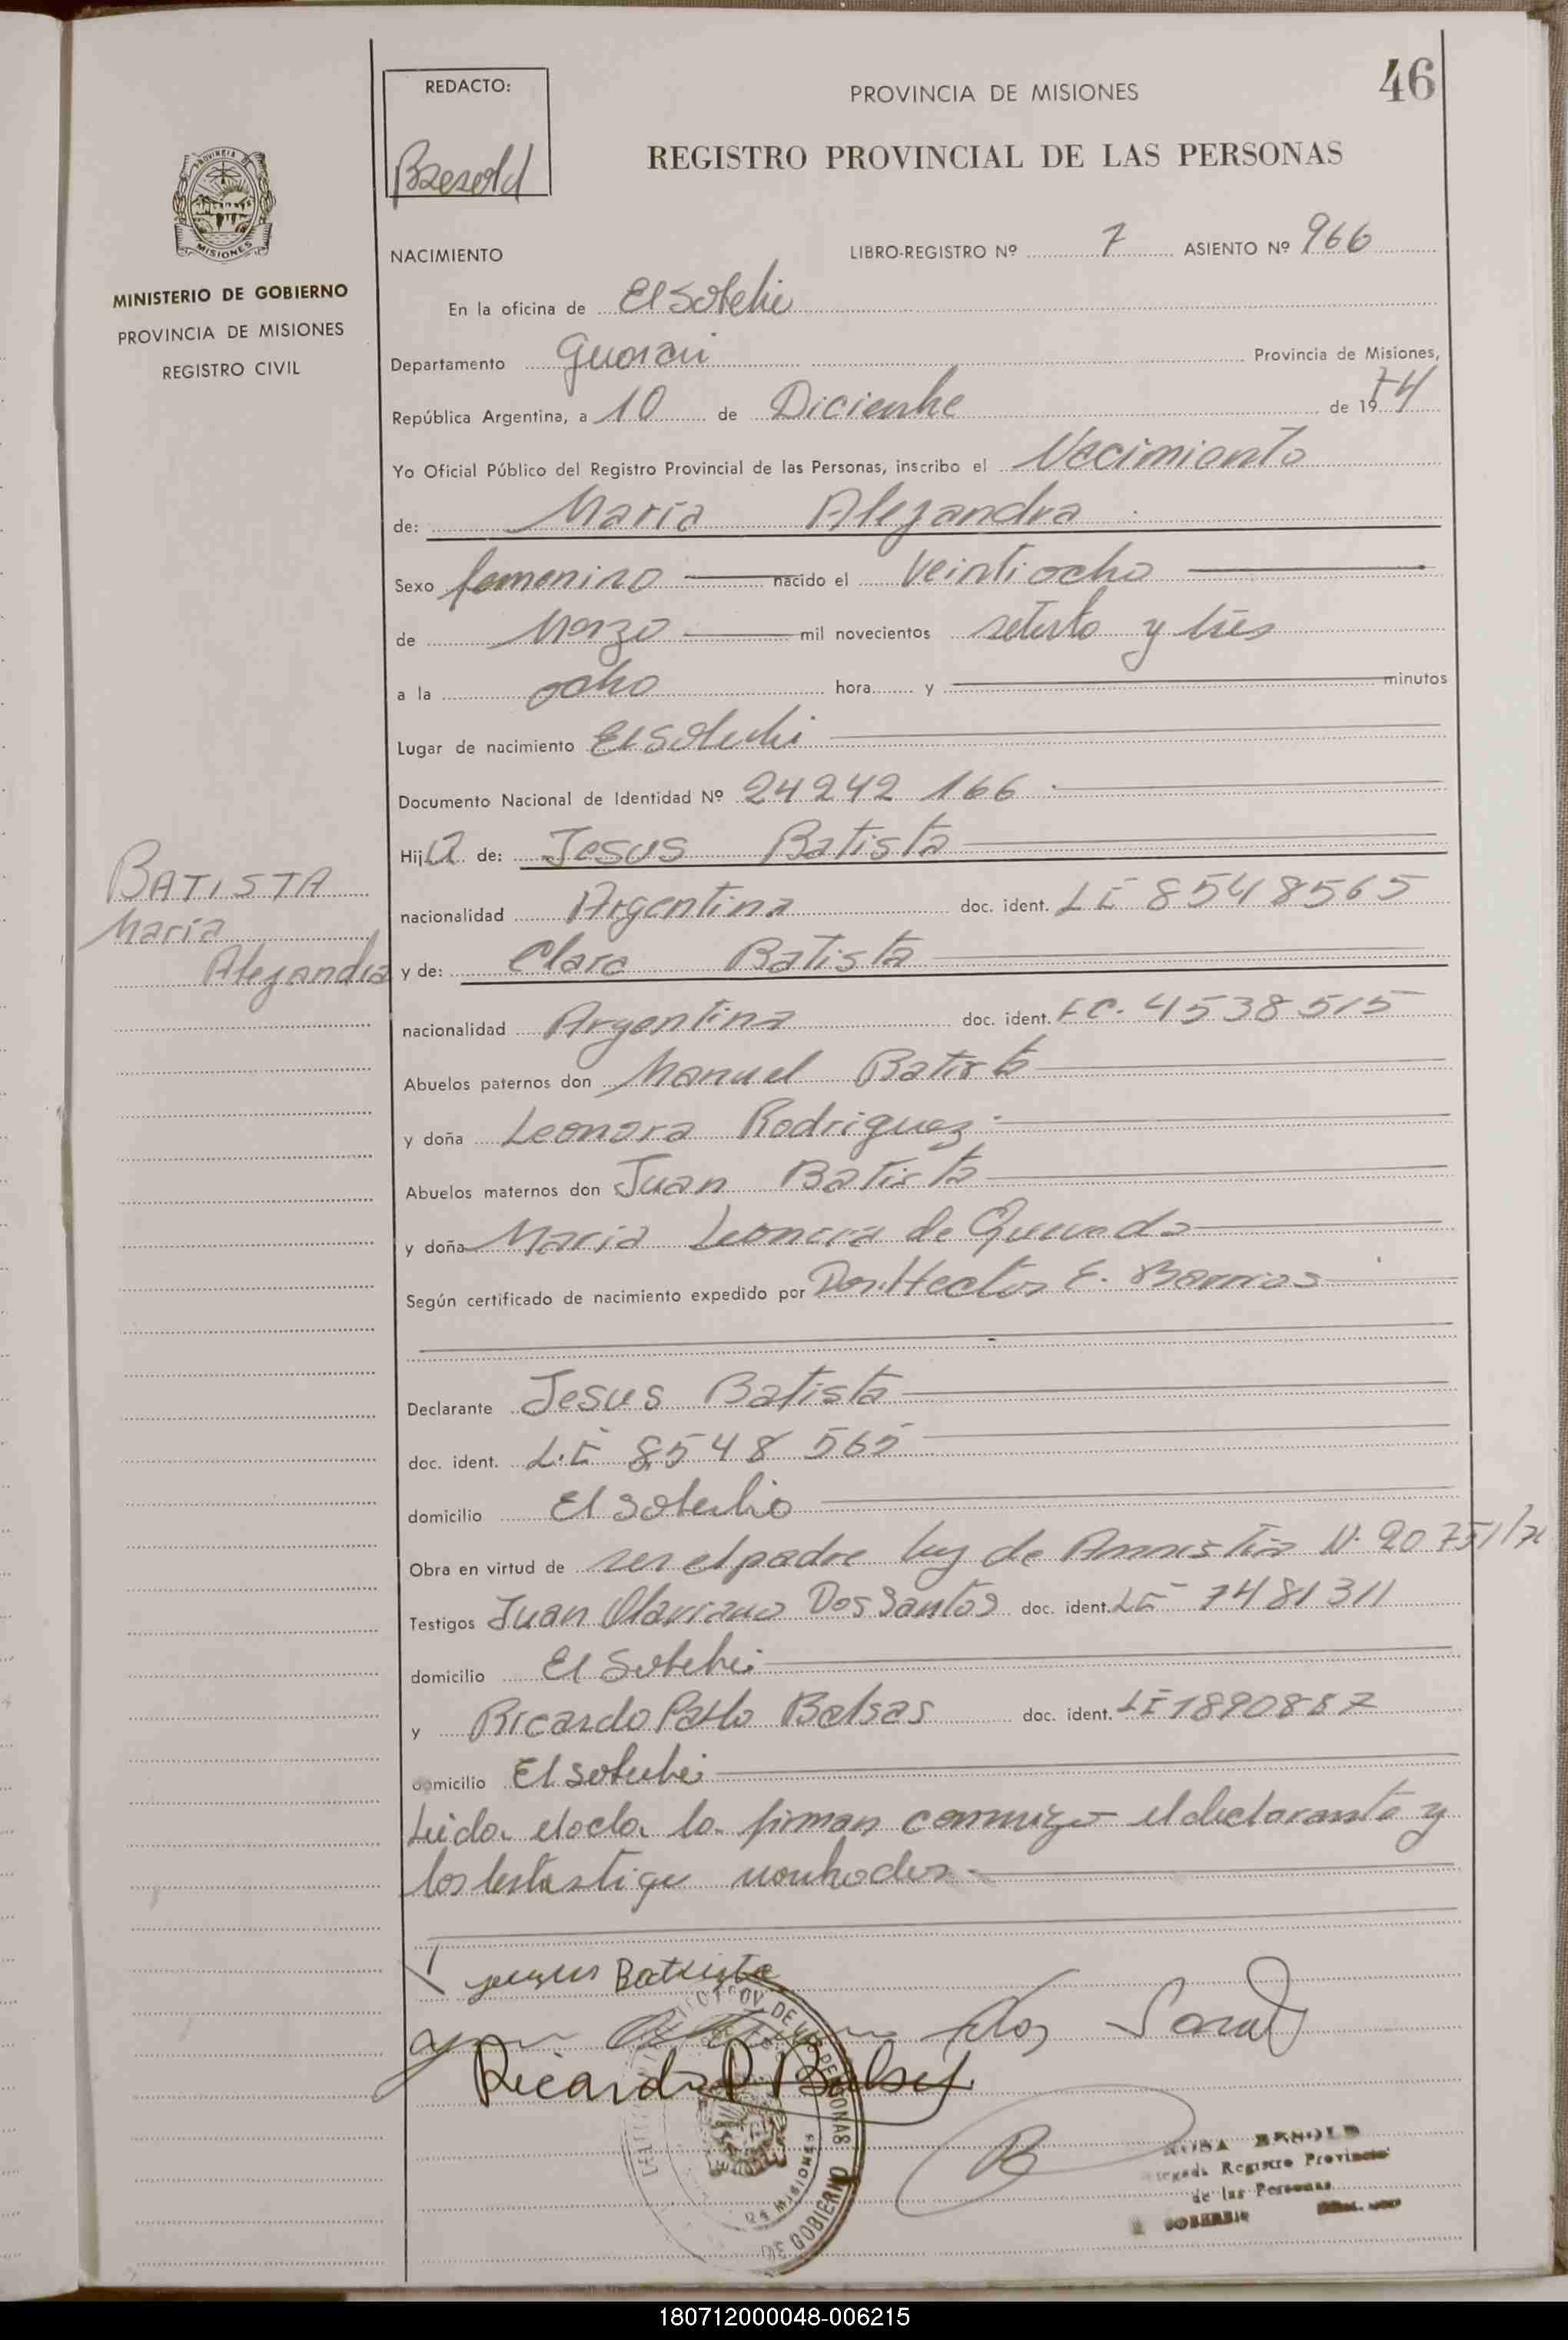 46
REDACTO:
PROVINCIA DE MISIONES
REGISTRO PROVINCIAL DE LAS PERSONAS
PROVINCIA DE
MISIONES
MINISTERIO DE GOBIERNO
PROVINCIA DE MISIONES
REGISTRO CIVIL
NACIMIENTO LIBRO-REGISTRO Nº 7 ASIENTO Nº 966
En la oficina de El
Departamento Guarani Provincia de Misiones,
República Argentina, a 10 de Diciembre de 1974
Yo Oficial Público del Registro Provincial de las Personas, inscribo el Nacimiento
de: Maria Alejandra
Sexo femenino nacido el veintiocho
de Marzo mil novecientos setenta y tres
a la ocho hora y minutos
Lugar de nacimiento El
Documento Nacional de Identidad Nº 24242 166
Hija de: Jesus Batista
nacionalidad Argentina doc. ident. LE 8548565
BATISTA
Maria
Alejandra
y de: Clara Batista
nacionalidad Argentina doc. ident. 4538515
Abuelos paternos don Manuel Batista
y doña Leonora Rodriguez
Abuelos maternos don Juan Batista
y doña Maria de
Según certificado de nacimiento expedido por Don Hector E. Barrios
Declarante Jesus Batista
doc. ident. L.E 8548 565
domicilio El
Obra en virtud de ser el padre ley de Amnistia N. 20 751/
Testigos Juan Olaviano Dos Santos doc. ident. LE 7481311
domicilio El
y Ricardo Pablo Balsas doc. ident. LE 1890887
domicilio El
Leida el acta la firman conmigo el declarante y
los
Batista
Ricardo P
ROSA BESOLD
Registro Provincial
de las Personas
180712000048-006215